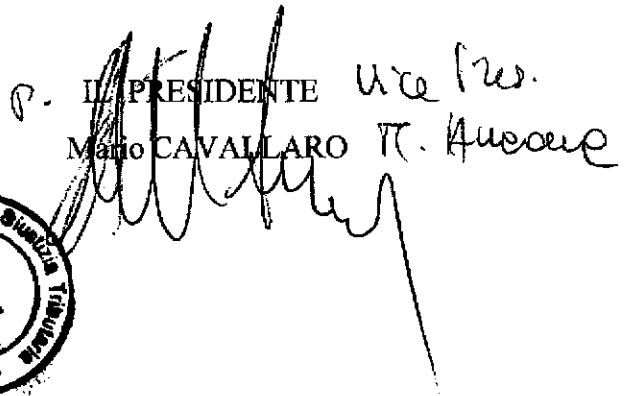 P. IL PRESIDENTE Vice Pres.
Mario CAVALLARO
Giustizia Tributaria